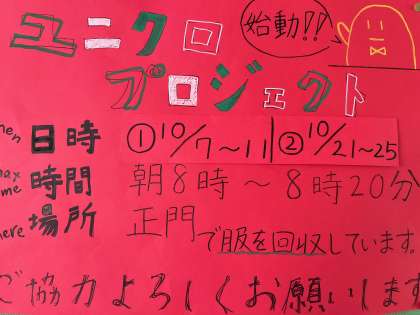 ユニクロ
始動!!
プロジェクト
when 日時 ①10/7～11 ②10/21～25
time 時間 朝8時～8時20分
where 場所 正門で服を回収しています。
ご協力よろしくお願いします